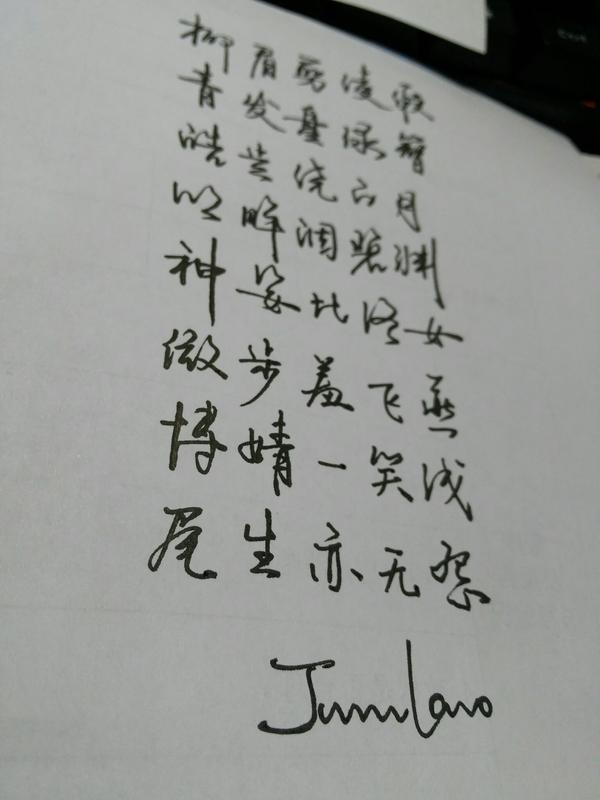 柳眉凌
青发绿簪
皓齿月
明眸碧渊
神姿比洛女
微步羞飞燕
博婧一笑浅
尾生亦无怨